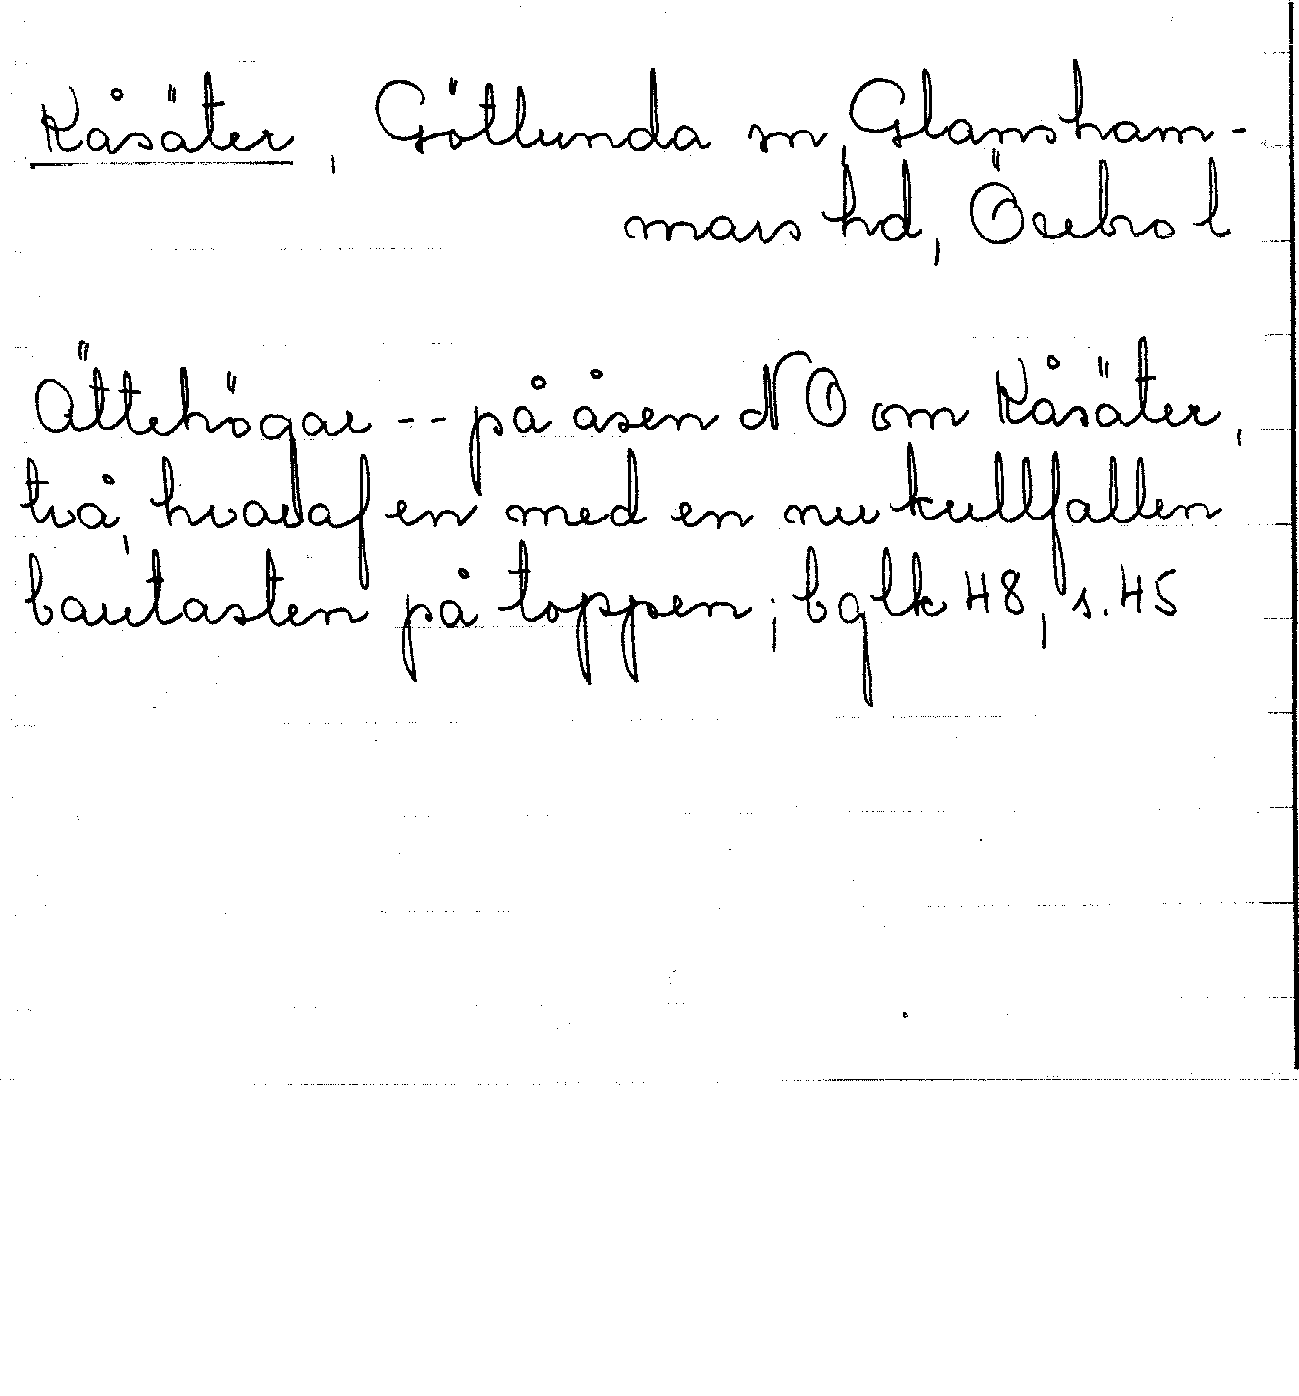 Kåsäter, Götlunda sn, Glansham-
mars hd, Örebro l
Ättehögar -- på åsen NO om Kåsäter,
två, hvadaf en med en nu kullfallen
bautasten på toppen; bglk 48, s. 45